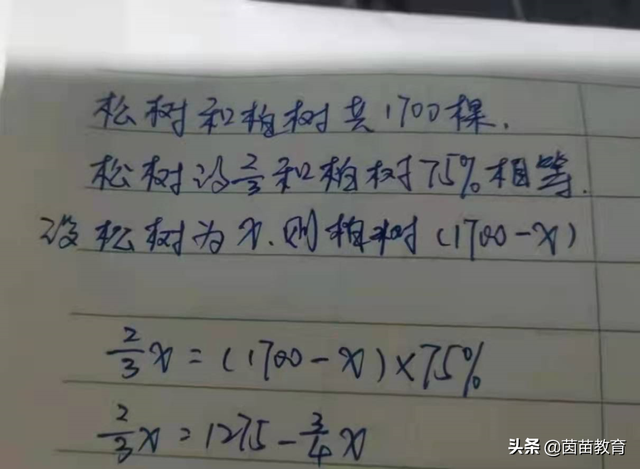 松树和柏树共1700棵.
松树的2/3和柏树75%相等.
设松树为x.则柏树(1700-x)
2/3x=(1700-x)×75%
2/3x=1275-3/4x
头条@茵苗教育